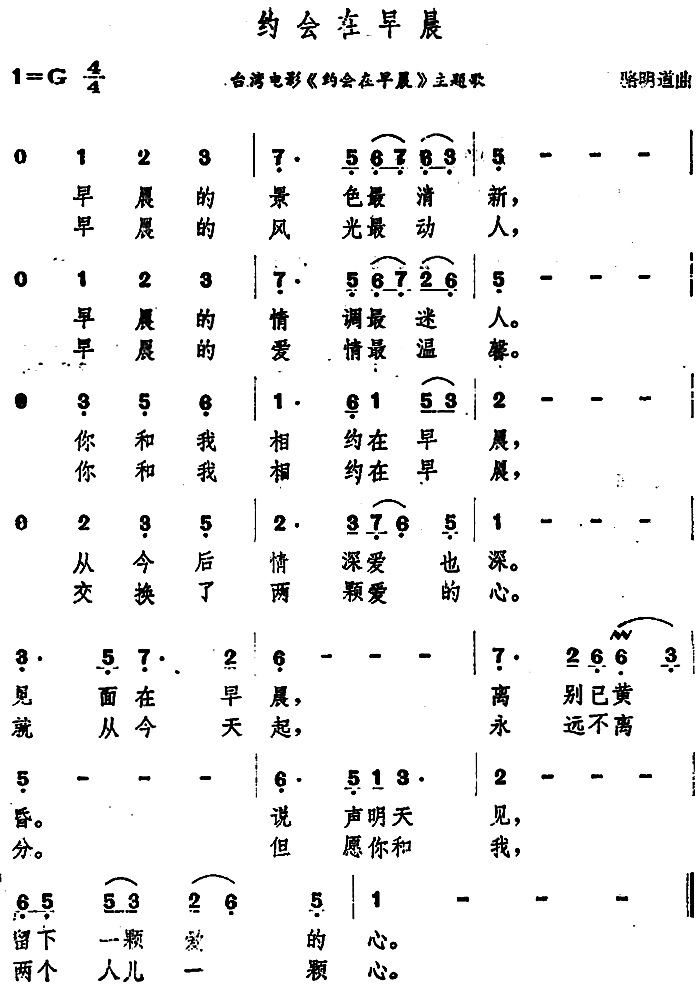 约会在早晨
1=G 4/4 台湾电影《约会在早晨》主题歌 骆明道曲
0 1 2 3 | 7· 5 6 7 6 3 | 5 - - - |
早晨的景色最清新，
早晨的风光最动人，
0 1 2 3 | 7· 5 6 7 2 6 | 5 - - - |
早晨的情调最迷人。
早晨的爱情最温馨。
0 3 5 6 | 1· 6 1 5 3 | 2 - - - |
你和我相约在早晨，
你和我相约在早晨，
0 2 3 5 | 2· 3 7 6 5 | 1 - - - |
从今后情深爱也深。
交换了两颗爱的心。
3· 5 7· 2 | 6 - - - | 7· 2 6 6 3 |
见面在早晨，离别已黄
就从今天起，永远不离
5 - - - | 6· 5 1 3· | 2 - - - |
昏。说声明天见，
分。但愿你和我，
6 5 5 3 2 6 5 | 1 - - - ‖
留下一颗爱的心。
两个人儿一颗心。